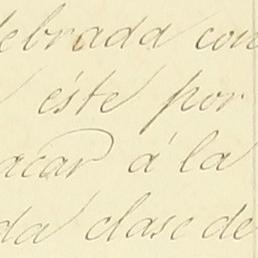 lebrada con
éste por
acar á la
da clase de